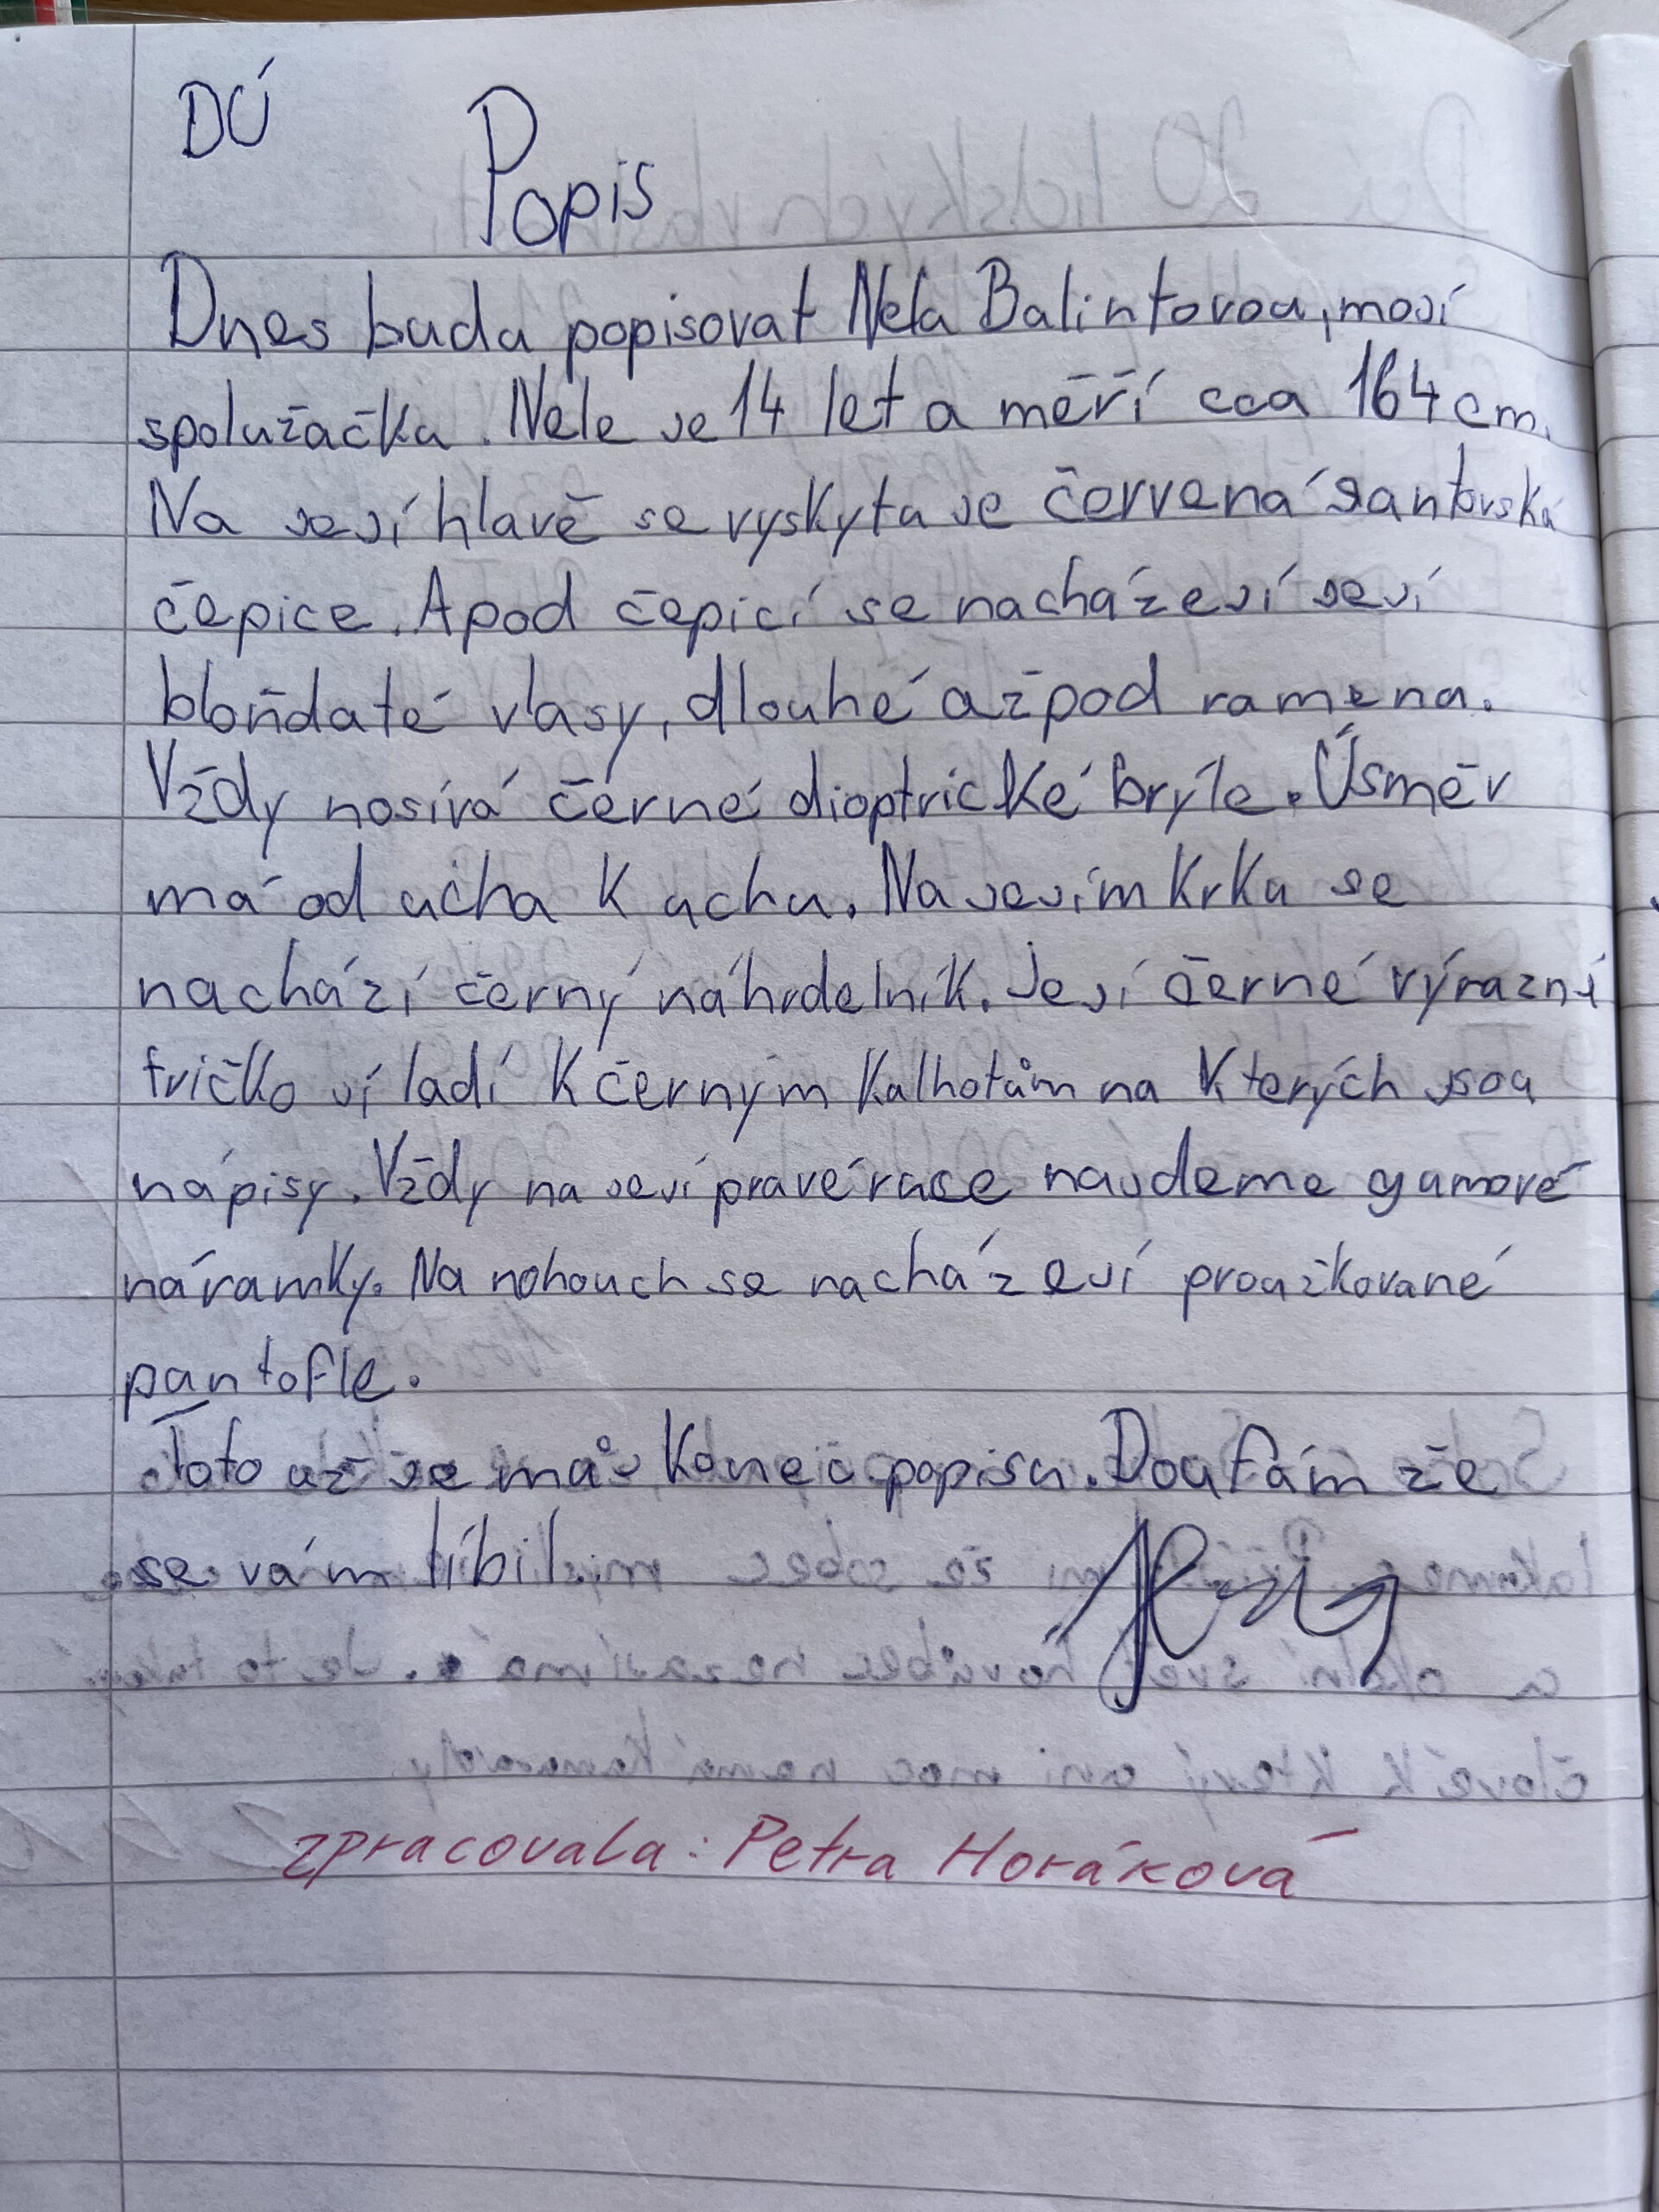 DÚ
Popis
Dnes budu popisovat Nela Balintovou, mojí
spolužačku. Nele je 14 let a měří cca 164 cm.
Na její hlavě se vyskytuje červená santovská
čepice. A pod čepicí se nacházejí její
bloňdaté vlasy, dlouhé až pod ramena.
Vždy nosívá černé dioptrické brýle. Úsměv
má od ucha k uchu. Na jejím krku se
nachází černý náhrdelník. Její černé výrazné
tričko jí ladí k černým kalhotám na kterých jsou
nápisy. Vždy na její pravé ruce najdeme gumové
náramky. Na nohouch se nacházejí proužkované
pantofle.
Toto už je můj konec popisu. Doufám že
se vám líbil.
zpracovala: Petra Horáková